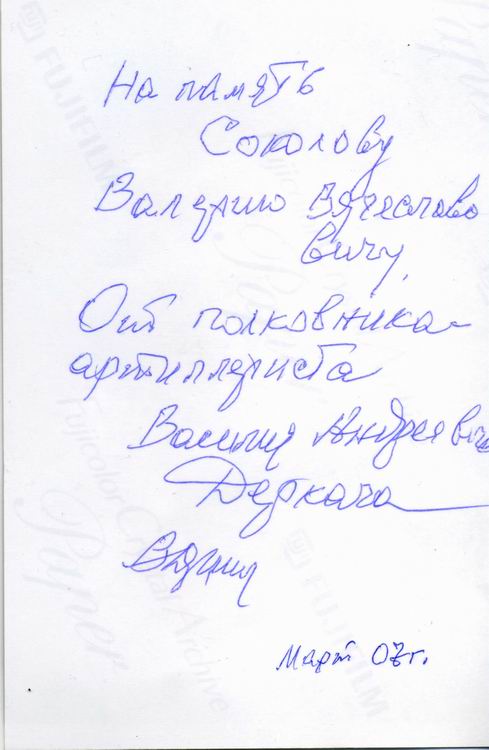 На память
Соколову
Валерию Вячеславо
вичу,
От полковника-
артиллериста
Василия Андреевича
Деркача
Март 07г.
FUJIFILM
FUJIFILM
Fujicolor Crystal Archive
Paper